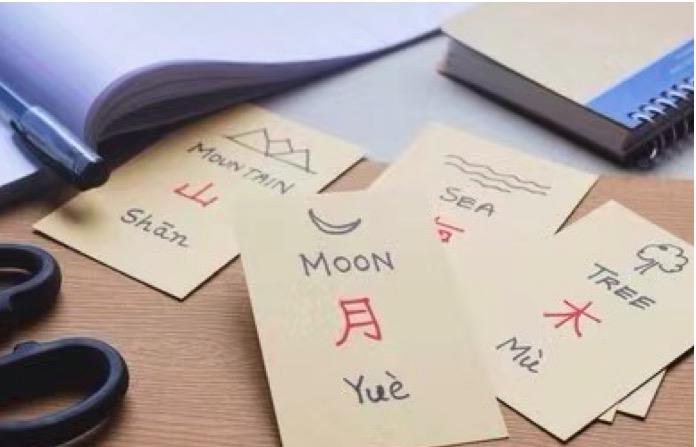 MOUNTAIN
山
Shān
SEA
MOON
月
Yuè
TREE
木
Mù